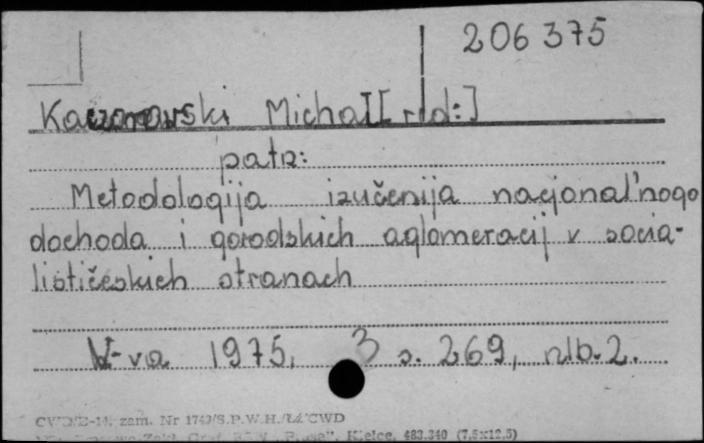 206 375
Kaczorowski Michał [red:]
patrz:
Metodologija izučenija nacjonal'nogo
dochoda i gorodskich aglomeracij v socia-
lističeskich stranach
W-va 1975, s. 269, nlb. 2.
zam. Nr 1742/S.P.W.H./Ł/CWD
Kielce, 483.340 (7,5x12,5)